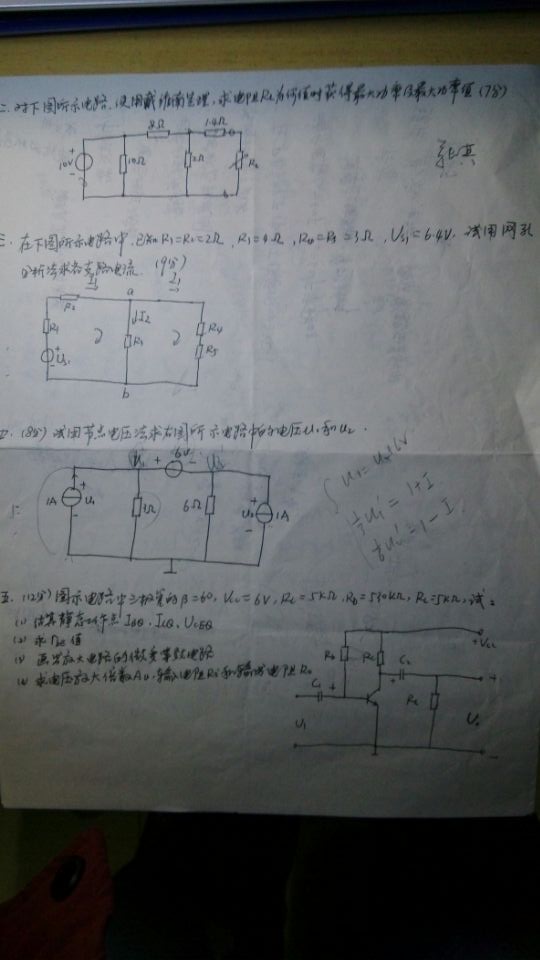 二. 对下图所示电路,使用戴维南定理,求电阻RL为何值时获得最大功率及最大功率值(7分)
8Ω 1.4Ω
10V + - 10Ω 2Ω RL
三. 在下图所示电路中,已知R1=R2=2Ω, R3=4Ω, R4=R5=3Ω, Us1=6.4V. 试用网孔
分析法求各支路电流. (9分)
R2 a I3
R1 I2 R4
+ Us1 - R3 R5
b
四. (8分) 试用节点电压法求右图所示电路中的电压U1和U2.
+ 6V -
1A + U1 - 6Ω U2 + - 1A
1+I
=1-I
五. (12分) 图示电路中三极管的β=60, Vcc=6V, Rc=5kΩ, Rb=530kΩ, RL=5kΩ, 试:
(1) 估算静态工作点 IBQ, ICQ, UCEQ
(2) 求rbe值
(3) 画出放大电路的微变等效电路
(4) 求电压放大倍数Au, 输入电阻Ri和输出电阻Ro
+Vcc
Rb Rc C2 +
C1 + RL
Ui Uo
-